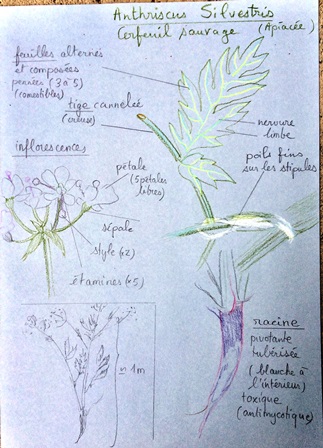 Anthriscus Silvestris
Cerfeuil sauvage (Apiacée)
feuilles alternes
et composées
pennées (3 à 5)
(comestibles)
tige cannelée
(creuse)
nervure
limbe
inflorescences
poils fins
sur les stipules
pétale
(5 pétales
libres)
sépale
style (x2)
étamines (x5)
≈ 1m
racine
pivotante
tubérisée
(blanche à
l'intérieur)
toxique
(antimycotique)